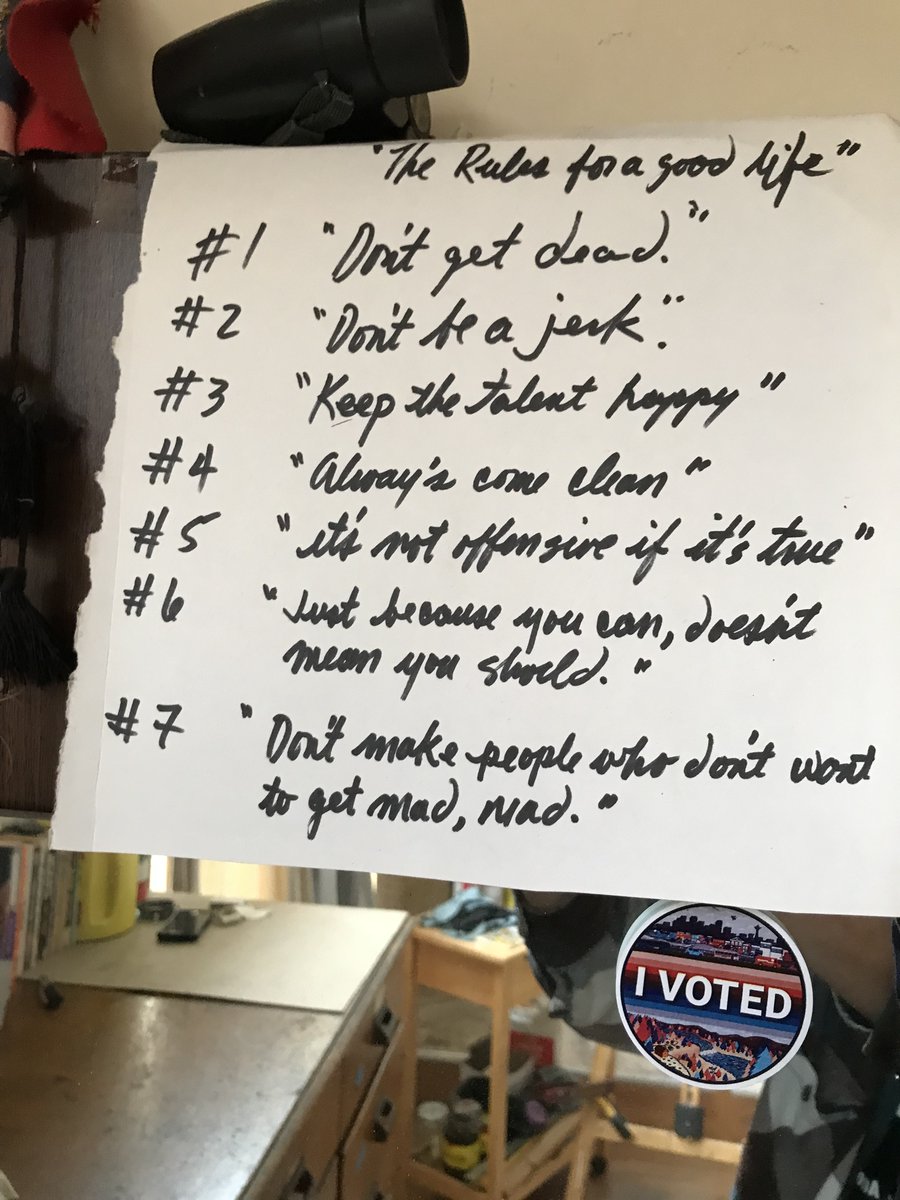 "The Rules for a good life"
#1 "Don't get dead."
#2 "Don't be a jerk."
#3 "Keep the talent happy"
#4 "Alway's come clean"
#5 "it's not offensive if it's true"
#6 "Just because you can, doesn't
mean you should."
#7 "Don't make people who don't want
to get mad, mad."
I VOTED